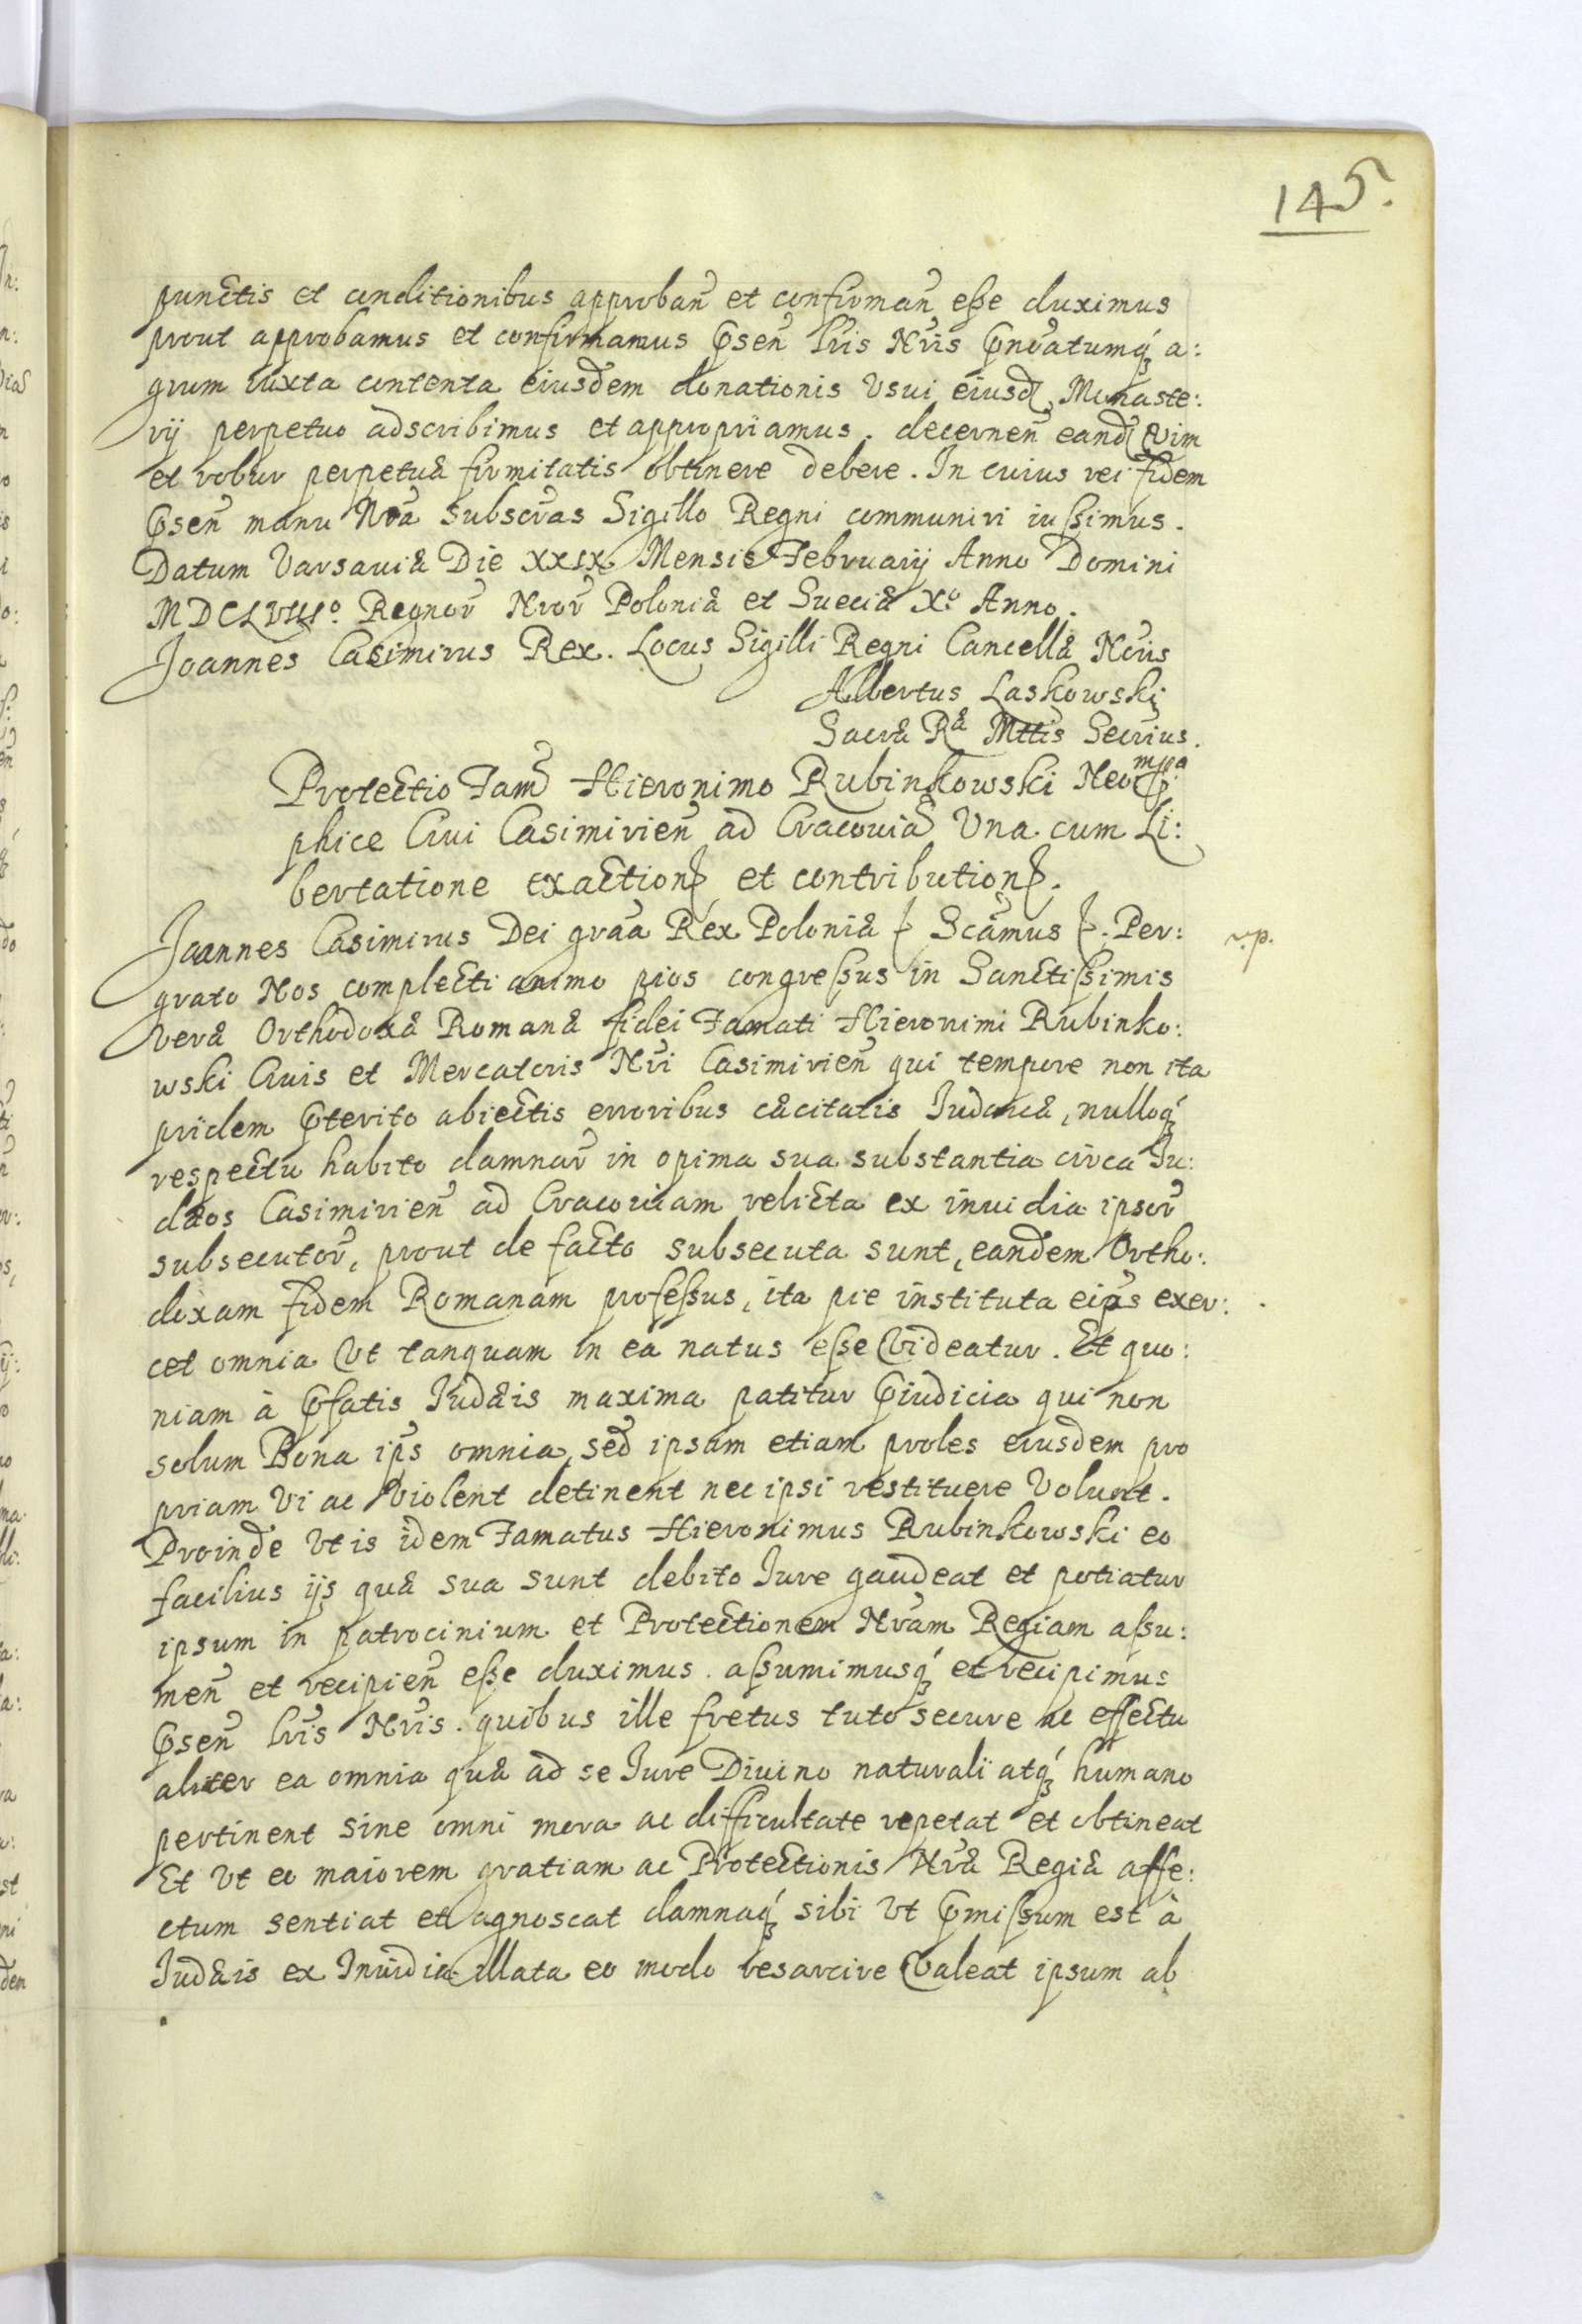 145.
punctis et conditionibus approban̄ et confirman̄ esse duximus
prout approbamus et confirmamus p̄sen̄ Lr̄is Nr̄is p̄nōatumq́ȝ a:
grum iuxta contenta eiusdem donationis Usui eiusd. Monaste:
rij perpetuo adscribimus et appropriamus. decernen̄ eand. vim
et robur perpetuæ firmitatis obtinere debere. In cuius rei fidem
p̄sen̄ manu Nr̄a subscr̄as Sigillo Regni communiri iussimus.
Datum Varsauiæ Die XXIX Mensis Februarij Anno Domini
MDCLVIIIo. Regnor̄ Nror̄ Poloniæ et Sueciæ Xo. Anno.
Joannes Casimirus Rex. Locus Sigilli Regni Cancellæ Nōris
Albertus Laskowski
Sacræ Ræ Mttis Secrīus.
mpa
Protectio Fam̄ Hieronimo Rubinkowski Neo
phice Ciui Casimirien̄ ad Cracouiā Una cum Li:
bertatione exaction. et contribution.
Joannes Casimirus Dei grāa Rex Poloniæ Scāmus . Per:
r.p.
grato Nos complecti animo pios congressus in Sanctissimis
veræ Orthodoxæ Romanæ fidei Famati Hieronimi Rubinko:
wski Ciuis et Mercatoris Nr̄i Casimirien̄ qui tempore non ita
pridem p̄terito abiectis erroribus cæcitatis Iudaicæ, nulloq́ȝ
respectu habito damnor̄ in opima sua substantia circa Iu:
dæos Casimirien̄ ad Cracouiam relicta ex inuidia ipsor̄
subsecutor̄, prout de facto subsecuta sunt, eandem Ortho:
doxam fidem Romanam professus, ita pie instituta eip̄s exer:
cet omnia Vt tanquam in ea natus esse Videatur. Et quo:
niam à p̄fatis Iudæis maxima patitur p̄iudicia qui non
solum Bona ip̄s omnia, sed ipsam etiam proles eiusdem pro
priam Vi ac Violent detinent nec ipsi restituere Volunt.
Proinde Vt is idem Famatus Hieronimus Rubinkowski eo
facilius ijs quæ sua sunt debito Iure gaudeat et potiatur
ipsum in patrocinium et Protectionem Nr̄am Regiam assu:
men̄ et recipien̄ esse duximus. assumimusq́ȝ et recipimus
p̄sen̄ Lr̄is Nr̄is. quibus ille fretus tuto secure ac effectu
aliter ea omnia quæ ad se Iure Diuino naturali atq́ȝ humano
pertinent sine omni mora ac difficultate repetat et obtineat
Et Vt eo maiorem gratiam ac Protectionis Nr̄æ Regiæ affe:
ctum sentiat et agnoscat damnaq́ȝ sibi Vt p̄missum est à
Iudæis ex Inuidia illata eo modo resarcire Valeat ipsum ab